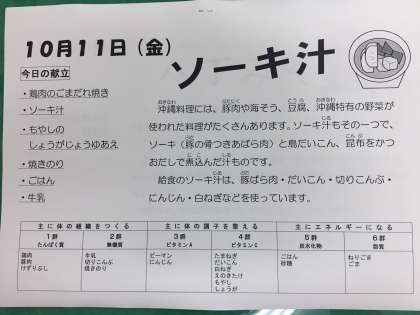 10月11日（金）
ソーキ汁
今日の献立
・鶏肉のごまだれ焼き
・ソーキ汁
・もやしの
しょうがじょうゆあえ
・焼きのり
・ごはん
・牛乳
沖縄料理には、豚肉や海そう、豆腐、沖縄特有の野菜が
使われた料理がたくさんあります。ソーキ汁もその一つで、
ソーキ（豚の骨つきあばら肉）と島だいこん、昆布をかつ
おだしで煮込んだ汁ものです。
給食のソーキ汁は、豚ばら肉・だいこん・切りこんぶ・
にんじん・白ねぎなどを使っています。
主に体の組織をつくる
主に体の調子を整える
主にエネルギーになる
1群 2群 3群 4群 5群 6群
たんぱく質 無機質 ビタミンA ビタミンC 炭水化物 脂質
鶏肉 牛乳 ピーマン たまねぎ ごはん ねりごま
豚肉 切りこんぶ にんじん だいこん 砂糖 ごま
けずりぶし 焼きのり 白ねぎ
えのきたけ
もやし
しょうが